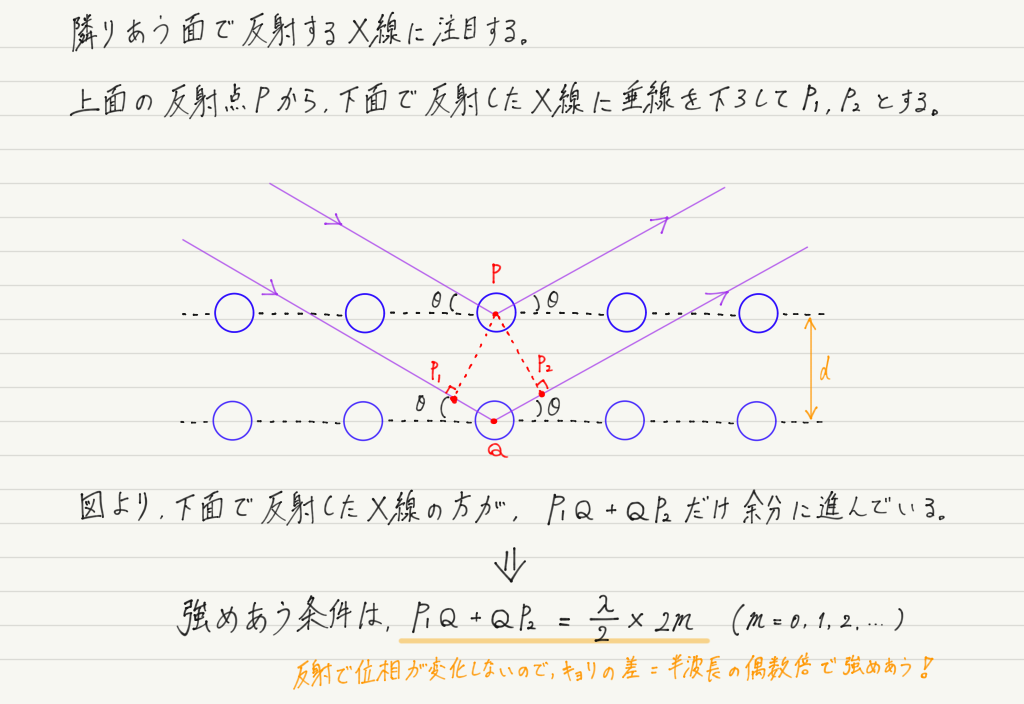 隣りあう面で反射するX線に注目する。
上面の反射点Pから、下面で反射したX線に垂線を下ろしてP₁, P₂とする。
P
θ
θ
P₁
P₂
d
θ
θ
Q
図より、下面で反射したX線の方が、P₁Q + QP₂だけ余分に進んでいる。
⇓
強めあう条件は、P₁Q + QP₂ = λ/2 × 2m (m = 0, 1, 2, …)
反射で位相が変化しないので、キョリの差 = 半波長の偶数倍で強めあう!